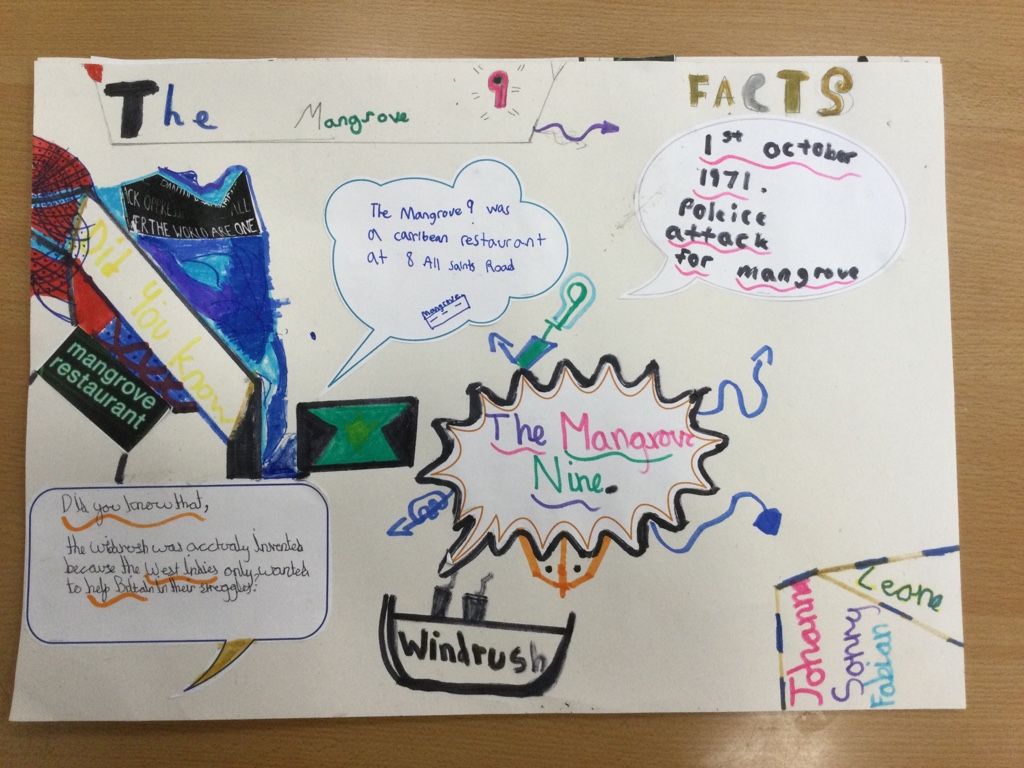 The Mangrove 9
FACTS
1st october
1971.
Police
attack
for mangrove
The Mangrove 9 was
a carribean restaurant
at 8 All saints Road
mangrove
CK OPPRE ALL
ER THE WORLD ARE ONE
Did You know
mangrove
restaurant
The Mangrove
Nine.
Did you know that,
the widrush was acctualy Invented
because the West Indies only wanted
to help Britain in their struggles.
Windrush
Leone
Johann
Sonny
Fabian